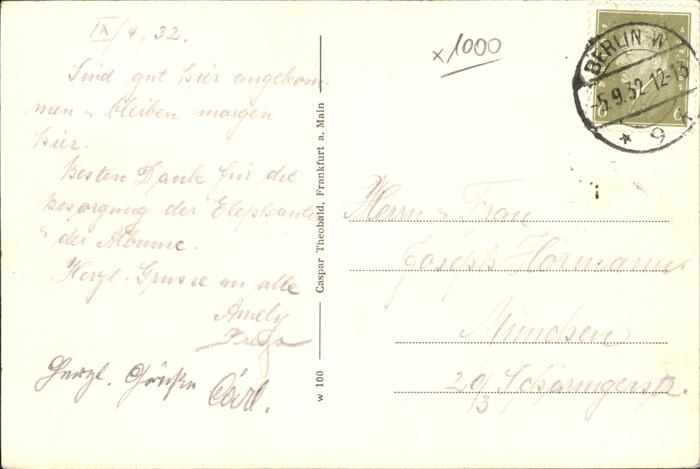 IX/4. 32.
Sind gut hier angekom-
men u bleiben morgen
hier.
Besten Dank für die
Besorgung der Elephanten
u der Albume.
Herzl. Grüsse an alle
Amely
Herzl. Grüße Carl.
w 100 Caspar Theobald, Frankfurt a. Main
x1000
BERLIN W
-5.9.32.12-13
* 9
6 6
Herrn u Frau
Joseph Hörmann
München
20/3 Schäringerstr.